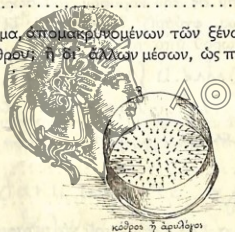 μα, ἀπομακρυνομένων τῶν ξένο
θρου; ἢ δι' ἄλλων μέσων, ὡς π
κόθρος ἢ ἀρυλόγος